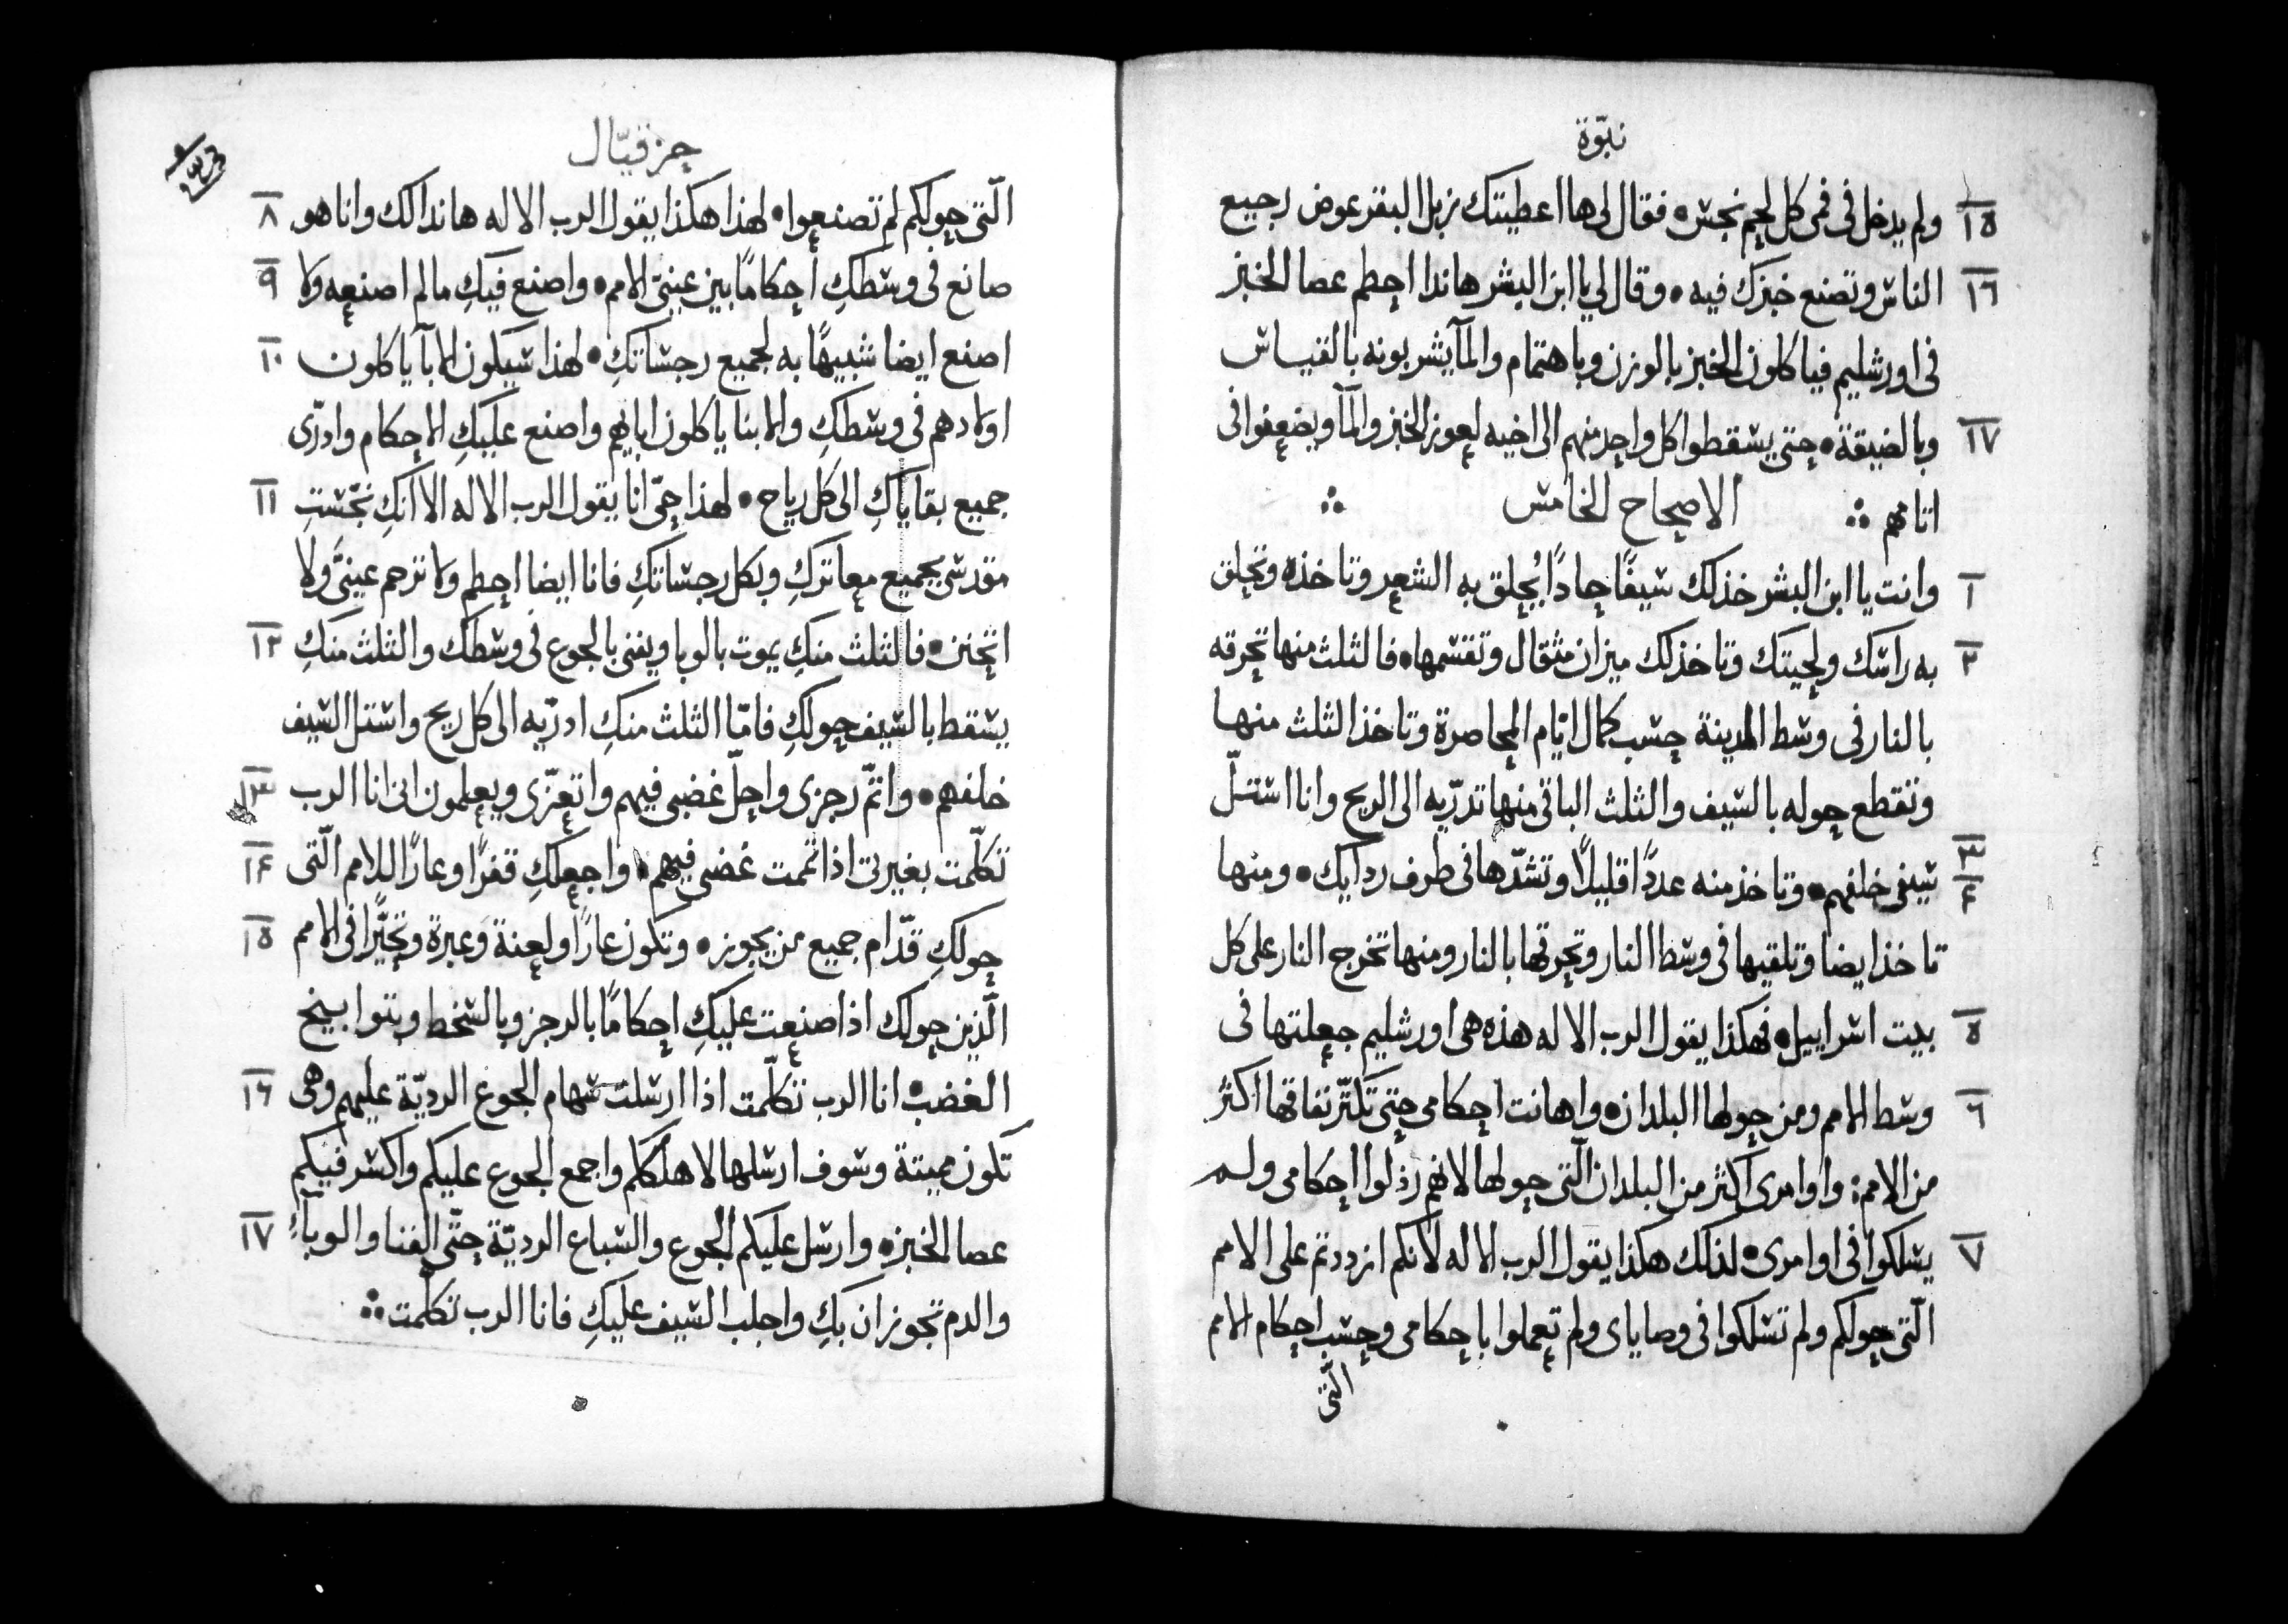 نبوّة
١٥ ولم يدخل فى فمى كل لحم نجس • فقال لى ها اعطيتك زبل البقر عوض رجيع
١٦ الناس وتصنع خبزك فيه • وقال لي يا ابن البشر هانذا احطم عصا الخبز
فى اورشليم فياكلون الخبز بالوزن وباهتمام والمآ يشربونه بالقياس
١٧ وبالضيقة • حتى يسقطوا كل واحد منهم الى اخيه لعوز الخبز والمآ ويضعفوا فى
اثامهم ∴ الاصحاح الخامس ∴
١ وانت يا ابن البشر خذ لك سيفًا حادًا يُحلق به الشعر وتاخذه وتحلق
٢ به راسك ولحيتك وتاخذ لك ميزان مثقال وتقسمها • فالثلث منها تحرقه
بالنار فى وسط المدينة حسب كمال ايّام المحاصرة وتاخذ الثلث منها
وتقطع حوله بالسيف والثلث الباقى منها تدرّيه الى الريح وانا استلّ
٣ ٤ سيفى خلفهم • وتاخذ منه عددًا قليلًا وتشدّها فى طرف ردايك • ومنها
تاخذ ايضا وتلقيها فى وسط النار وتحرقها بالنار ومنها تخرج النار على كل
٥ بيت اسراييل • فهكذا يقول الرب الاله هذه هى اورشليم جعلتها فى
٦ وسط الامم ومن حولها البلدان • واهانت احكامى حتى تكثر نفاقها اكثر
من الامم • واوامرى اكثر من البلدان الّتى حولها لانهم رذلوا احكامى ولم
٧ يسلكوا فى اوامرى • لذلك هكذا يقول الرب الاله لانكم ازددتم على الامم
الّتى حولكم ولم تسلكوا فى وصاياى ولم تعملوا باحكامى وحسب احكام الامم
الّتى
حزقيّال
٨ الّتى حولكم لم تصنعوا • لهذا هكذا يقول الرب الاله هانذا لك وانا هو
٩ صانع فى وسطكِ احكامًا بين عينىّ الامم • واصنع فيكِ ما لم اصنعه ولا
١٠ اصنع ايضا شبيهًا به لجميع رجساتكِ • لهذا سيكون الابآ ياكلون
اولادهم فى وسطكِ والابنآ ياكلون ابايهم واصنع عليكِ الاحكام وادرّى
١١ جميع بقاياكِ الى كل رياح • لهذا حىّ انا يقول الرب الاله الا انكِ نجّستِ
مقدسى بجميع معاثركِ وبكل رجساتكِ فانا ايضا احطم ولا ترحم عينىَّ ولا
١٢ اتحنن • فالثلث منكِ يموت بالوبا ويفنى بالجوع فى وسطك والثلث منكِ
يسقط بالسيف حولكِ فامّا الثلث منكِ ادرّيه الى كل ريح واستل السيف
١٣ خلفهم • واتمّ رجزى واحلّ غضبى فيهم واتعزّى ويعلمون انى انا الرب
١٤ تكلّمت بغيرتى اذا تممت غضبى فيهم • واجعلكِ قفرًا وعارًا للامم الّتى
١٥ حولكِ قدّام جميع من يجوز • وتكون عارًا ولعنة وعبرة وتحيّرًا فى الامم
الّذين حولك اذا صنعت عليكِ احكامًا بالرجز وبالسخط وبتوابيخ
١٦ الغضب • انا الرب تكلّمت اذا ارسلت سهام الجوع الرديّة عليهم وهى
تكون مميتة وسوف ارسلها لاهلككم واجمع الجوع عليكم واكسر فيكم
١٧ عصا الخبز • وارسل عليكم الجوع والسباع الرديّة حتّى الفنا والوبآءُ
والدم تجوزان بكِ واجلب السيف عليكِ فانا الرب تكلّمت ∴